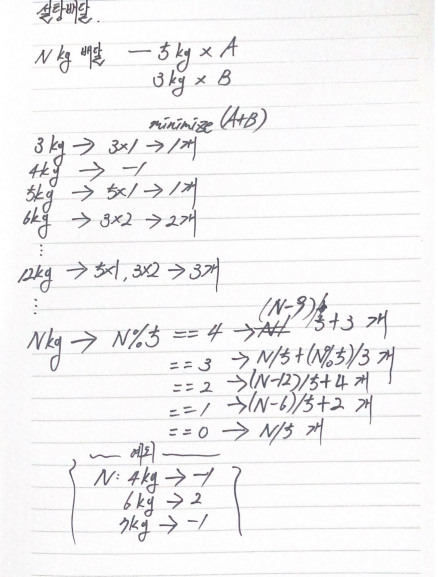 설탕배달.
N kg 배달 — 5kg × A
3kg × B
minimize (A+B)
3kg → 3×1 → 1개
4kg → -1
5kg → 5×1 → 1개
6kg → 3×2 → 2개
⋮
12kg → 5×1, 3×2 → 3개
⋮
Nkg → N%5 == 4 → (N-9)/5+3 개
== 3 → N/5+(N%5)/3 개
== 2 → (N-12)/5+4 개
== 1 → (N-6)/5+2 개
== 0 → N/5 개
예외
N: 4kg → -1
6kg → 2
7kg → -1